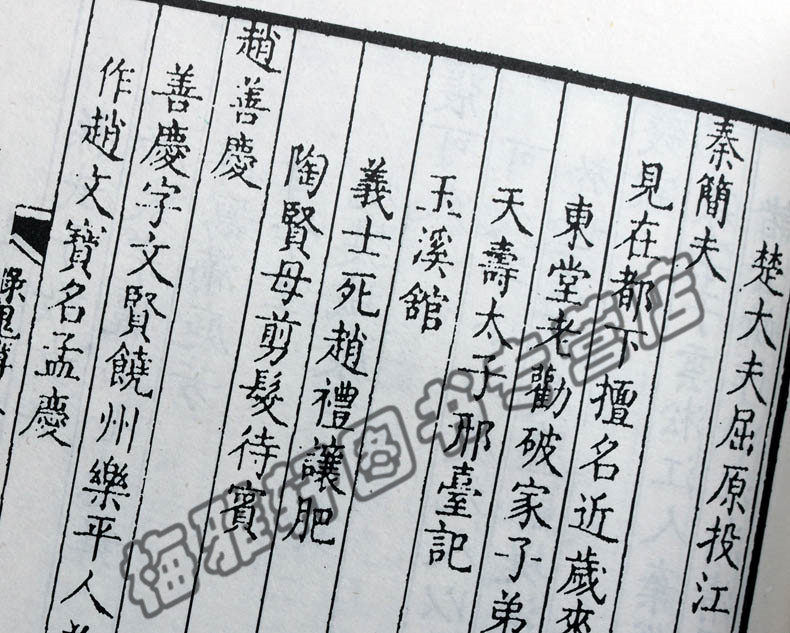 楚大夫屈原投江
秦簡夫
見在都下擅名近歲來
東堂老勸破家子弟
天壽太子邪臺記
玉溪舘
義士死趙禮讓肥
陶賢母剪髮待賓
趙善慶
善慶字文賢饒州樂平人
作趙文寶名孟慶
梅雅轩图书专营店